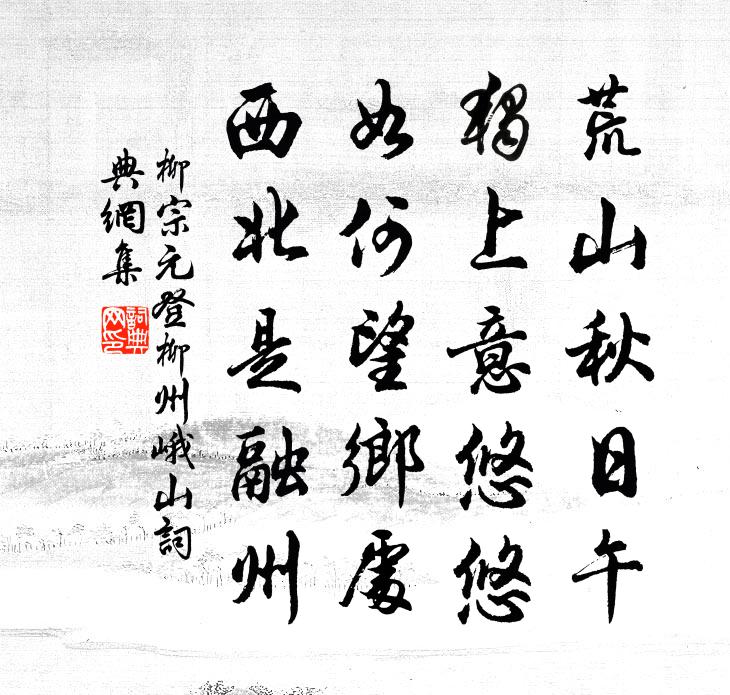 荒山秋日午
獨上意悠悠
如何望鄉處
西北是融州
柳宗元登柳州峨山詞
典網集
詞典网印